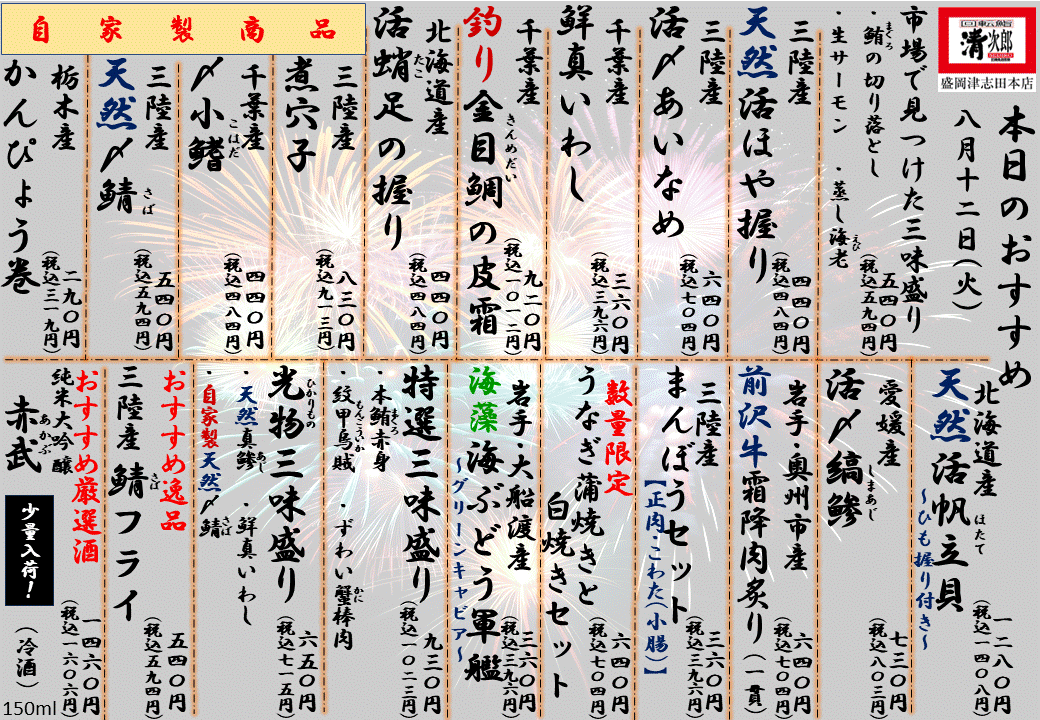 回転鮨
清次郎
盛岡津志田本店
本日のおすすめ
八月十二日(火)
市場で見つけた三味盛り
・鮪の切り落とし
まぐろ
・生サーモン ・蒸し海老
えび
五四〇円
(税込五九四円)
三陸産
天然活ほや握り
四四〇円
(税込四八四円)
三陸産
活〆あいなめ
六四〇円
(税込七〇四円)
千葉産
鮮真いわし
三六〇円
(税込三九六円)
千葉産
釣り金目鯛の皮霜
きんめだい
九二〇円
(税込一〇一二円)
北海道産
活蛸足の握り
たこ
四四〇円
(税込四八四円)
自家製商品
三陸産
煮穴子
八三〇円
(税込九一三円)
千葉産
〆小鰭
こはだ
四四〇円
(税込四八四円)
三陸産
天然〆鯖
さば
五四〇円
(税込五九四円)
栃木産
かんぴょう巻
二九〇円
(税込三一九円)
北海道産
天然活帆立貝
ほたて
~ひも握り付き~
一二八〇円
(税込一四〇八円)
愛媛産
活〆縞鯵
しまあじ
七三〇円
(税込八〇三円)
岩手・奥州市産
前沢牛霜降肉炙り(一貫)
六四〇円
(税込七〇四円)
三陸産
まんぼうセット
【正肉・こわた(小腸)】
三六〇円
(税込三九六円)
数量限定
うなぎ蒲焼きと
白焼きセット
六四〇円
(税込七〇四円)
岩手・大船渡産
海藻海ぶどう軍艦
~グリーンキャビア~
三六〇円
(税込三九六円)
特選三味盛り
・本鮪赤身
まぐろ
・紋甲烏賊 ・ずわい蟹棒肉
もんごういか
かに
九三〇円
(税込一〇二三円)
光物三味盛り
ひかりもの
・天然真鯵 ・鮮真いわし
あじ
・自家製天然〆鯖
さば
六五〇円
(税込七一五円)
おすすめ逸品
三陸産 鯖フライ
さば
五四〇円
(税込五九四円)
おすすめ厳選酒
純米大吟醸
赤武
あかぶ
少量入荷!
(冷酒)
一四六〇円
(税込一六〇六円)
150ml